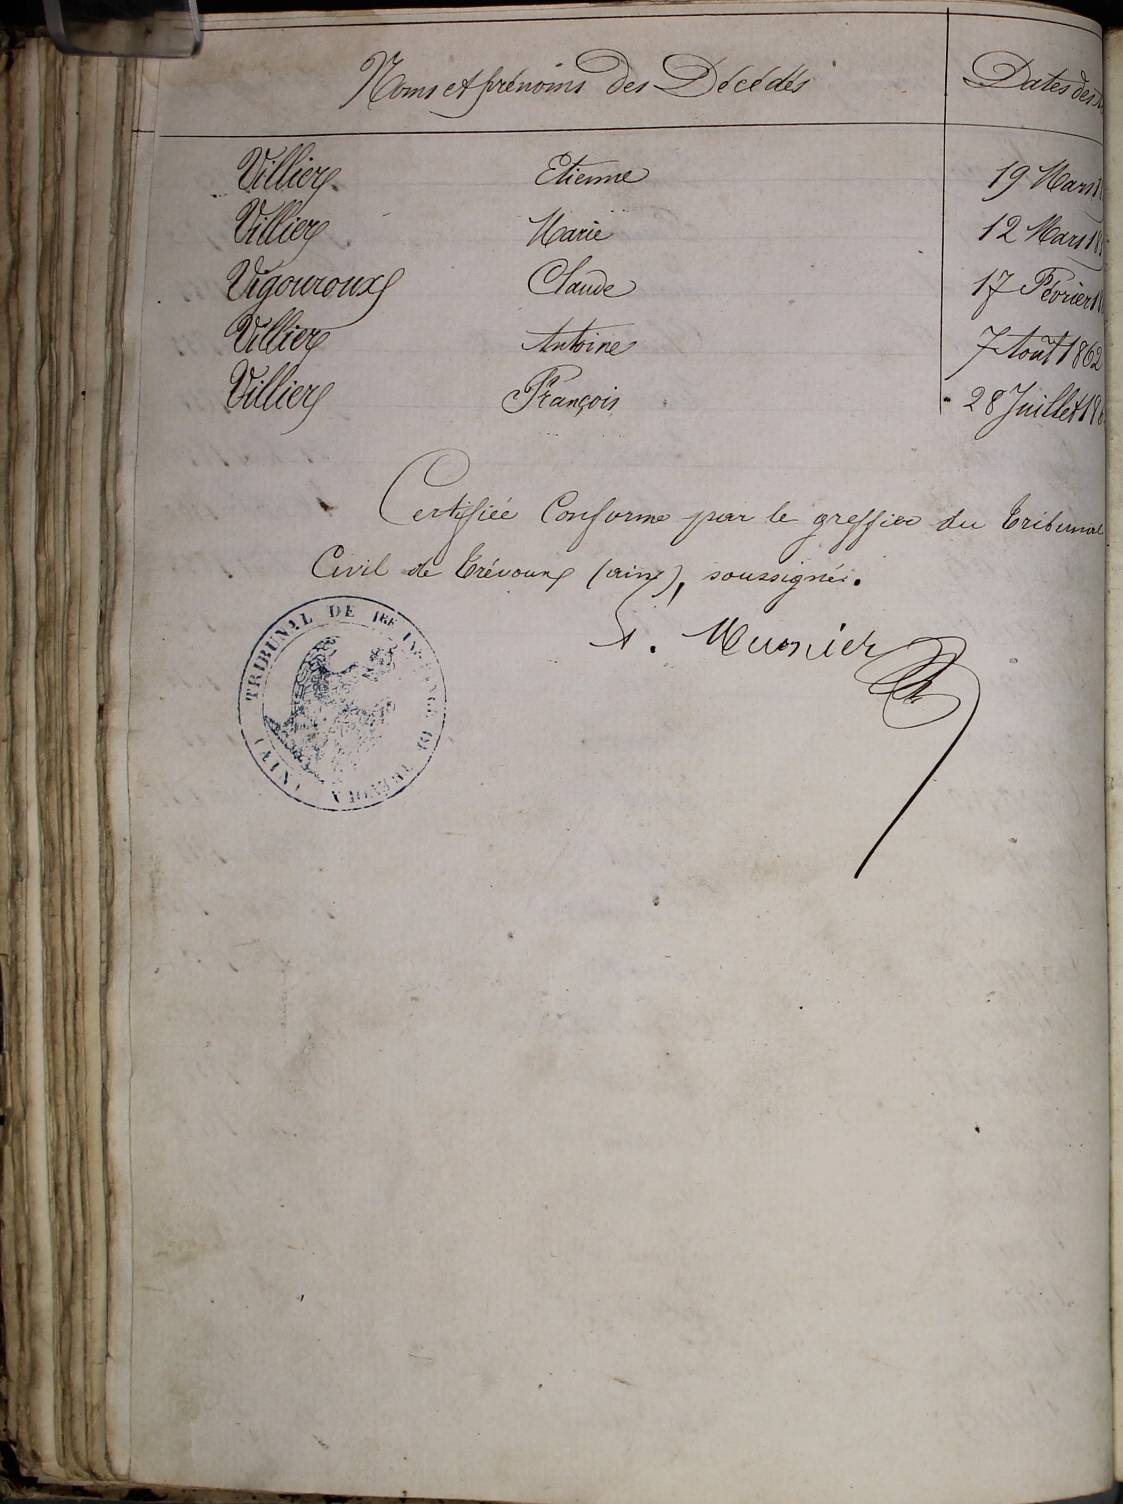 Noms et prénoms des Décédés Dates des
Villiers Etienne 19 Mars 1
Villiers Marie 12 Mars 18
Vigouroux Claude 17 Février 1
Villiers Antoine 7 Août 1862
Villiers François 28 Juillet 18
Certifiée Conforme par le greffier du tribunal
Civil de trévoux (ain), soussigné.
A. Meunier
TRIBUNAL DE 1ERE INSTANCE DE TREVOUX (AIN)